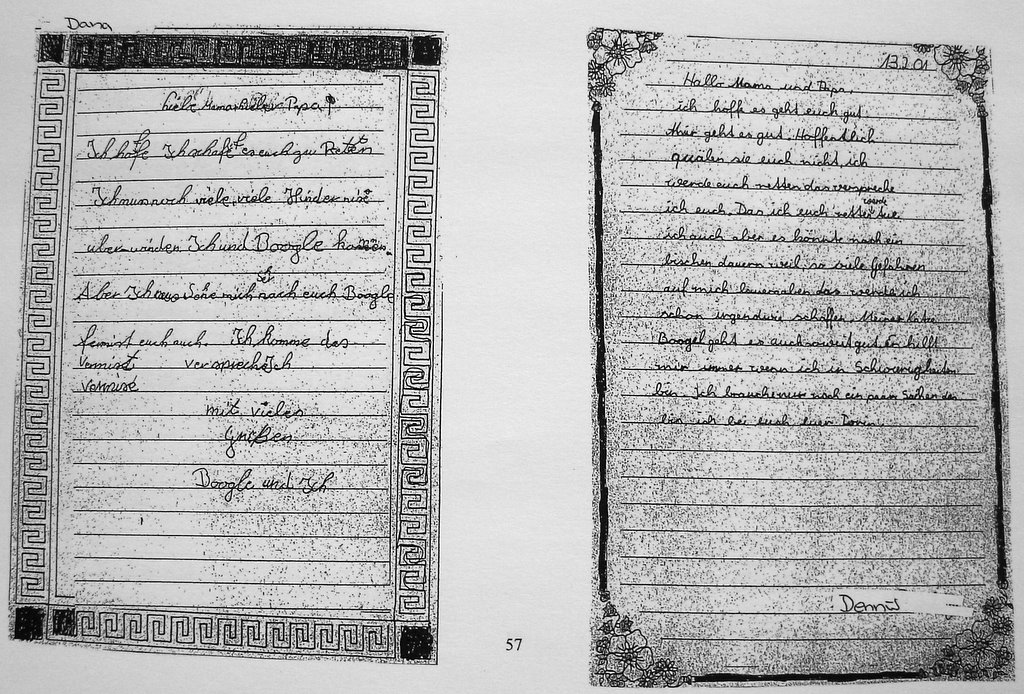 Dana
liebe Mama lieber Papa!
Ich hoffe Ich schaffe es euch zu Retten
Ich mus noch viele, viele Hindernise
überwinden Ich und Boogle
Aber Ich sehne mich nach euch Boogle
fermist euch auch. Ich komme das
Vermist verspreche Ich
Vermist
mit vielen
Grüßen
Boogle und Ich
57
13.2.01
Hallo Mama und Papa,
ich hoffe es geht euch gut.
Mir geht es gut. Hoffentlich
quälen sie euch nicht, ich
werde euch retten das verspreche
ich euch. Das ich euch rette werde
ich auch aber es könnte noch ein
bischen dauern weil, so viele Gefahren
auf mich lauern aber das werde ich
schon irgendwie schaffen. Meiner Katze
Boogel geht es auch soweit gut er hilft
mir immer wenn ich in Schwierigkeiten
bin. Ich brauche nur noch ein paar Sachen dan
bin ich bei euch euer
Dennis